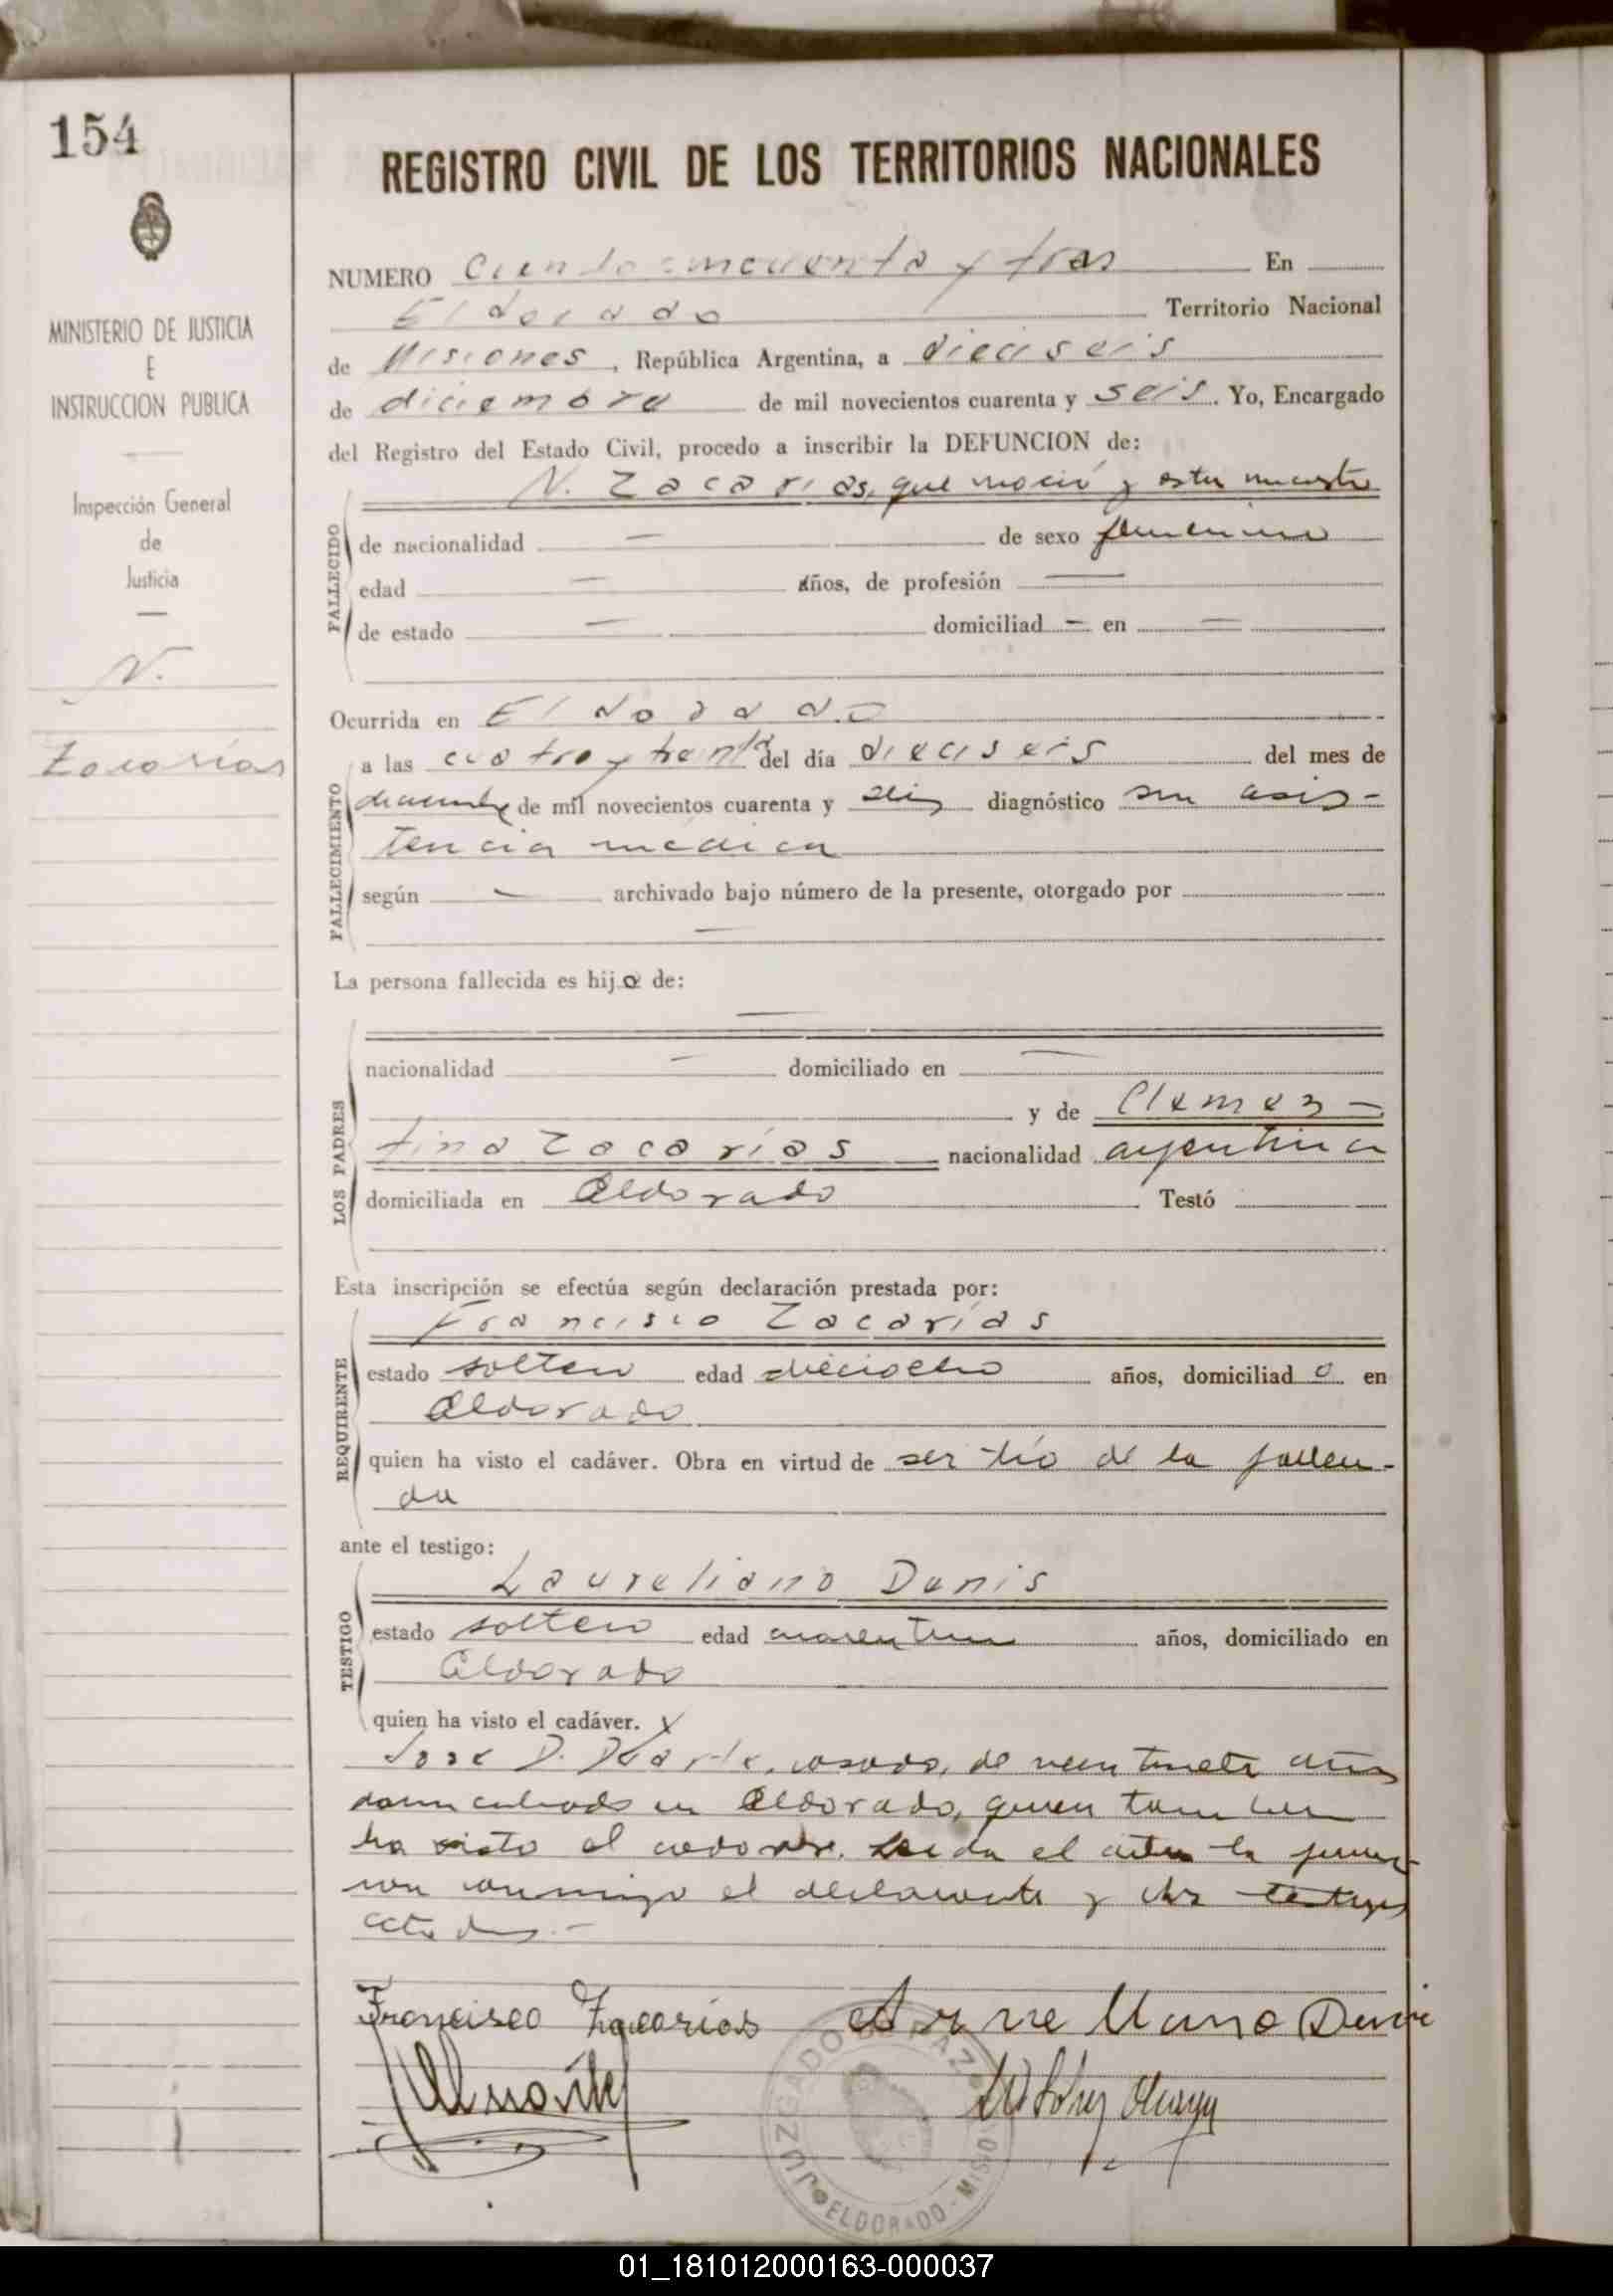 154
MINISTERIO DE JUSTICIA
E
INSTRUCCION PUBLICA
Inspección General
de
Justicia
N.
Zacarías
REGISTRO CIVIL DE LOS TERRITORIOS NACIONALES
NUMERO Ciento cincuenta y tres En
Eldorado Territorio Nacional
de Misiones, República Argentina, a dieciseis
de diciembre de mil novecientos cuarenta y seis. Yo, Encargado
del Registro del Estado Civil, procedo a inscribir la DEFUNCION de:
N. Zacarías, que nació y esta muerta
FALLECIDO
de nacionalidad — de sexo femenino
edad — años, de profesión —
de estado — domiciliad — en —
Ocurrida en Eldorado
FALLECIMIENTO
a las cuatro y treinta del día dieciseis del mes de
diciembre de mil novecientos cuarenta y seis diagnóstico sin asis-
tencia medica
según — archivado bajo número de la presente, otorgado por
—
La persona fallecida es hija de:
—
LOS PADRES
nacionalidad — domiciliado en —
y de Clemen-
tina Zacarías nacionalidad argentina
domiciliada en Eldorado Testó
Esta inscripción se efectúa según declaración prestada por:
Francisco Zacarías
REQUIRENTE
estado soltero edad dieciocho años, domiciliado en
Eldorado
quien ha visto el cadáver. Obra en virtud de ser tío de la falleci-
da
ante el testigo:
Laureliano Denis
TESTIGO
estado soltero edad cuarentiun años, domiciliado en
Eldorado
quien ha visto el cadáver. y
José D. Duarte, casado, de años
domiciliado en Eldorado, quien tambien
ha visto el cadaver. Leida el acta la firma-
ron conmigo el declarante y los testigos
citados.-
Francisco Zacarías
Denis
JUZGADO DE PAZ
ELDORADO - MISIONES
01_181012000163-000037